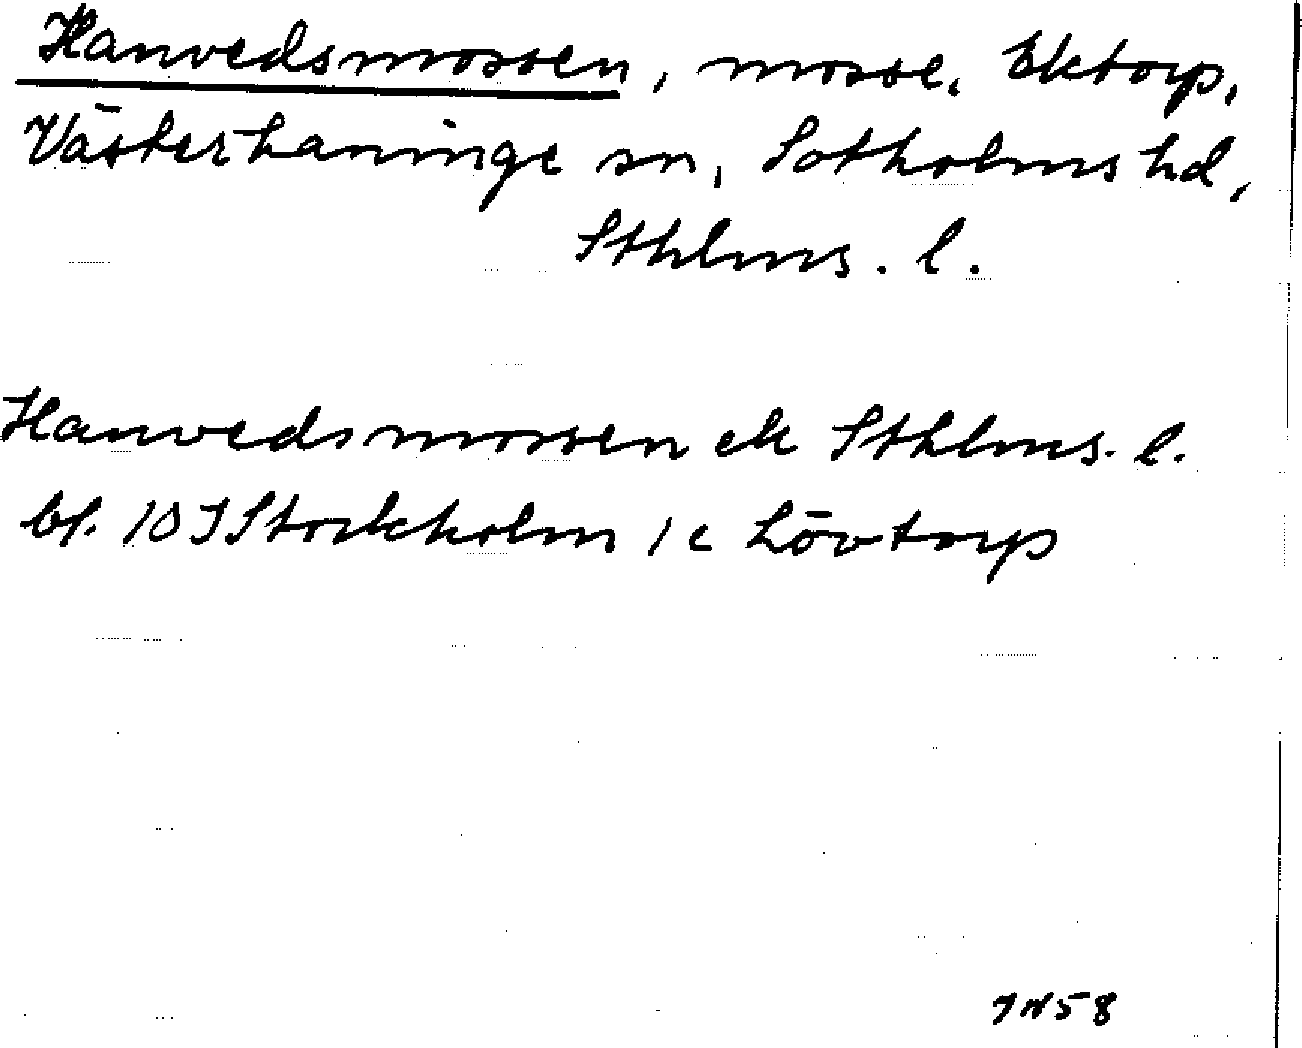 Hanvedsmossen, mosse, Ektorp,
Västerhaninge sn, Sotholms hd,
Sthlms. l.
Hanvedsmossen ek Sthlms. l.
bl. 10 I Stockholm 1c Lövtorp
58